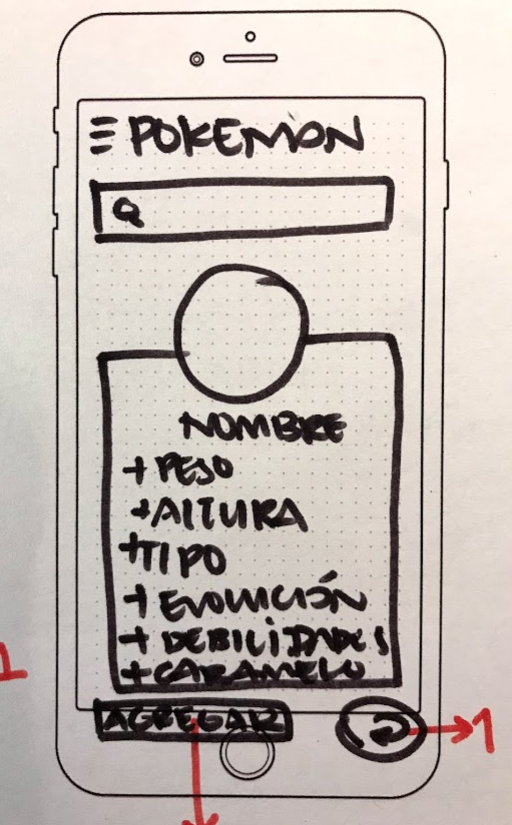 POKEMON
NOMBRE
+ PESO
+ ALTURA
+ TIPO
+ EVOLUCIÓN
+ DEBILIDADES
+ CARAMELO
AGREGAR
1
1